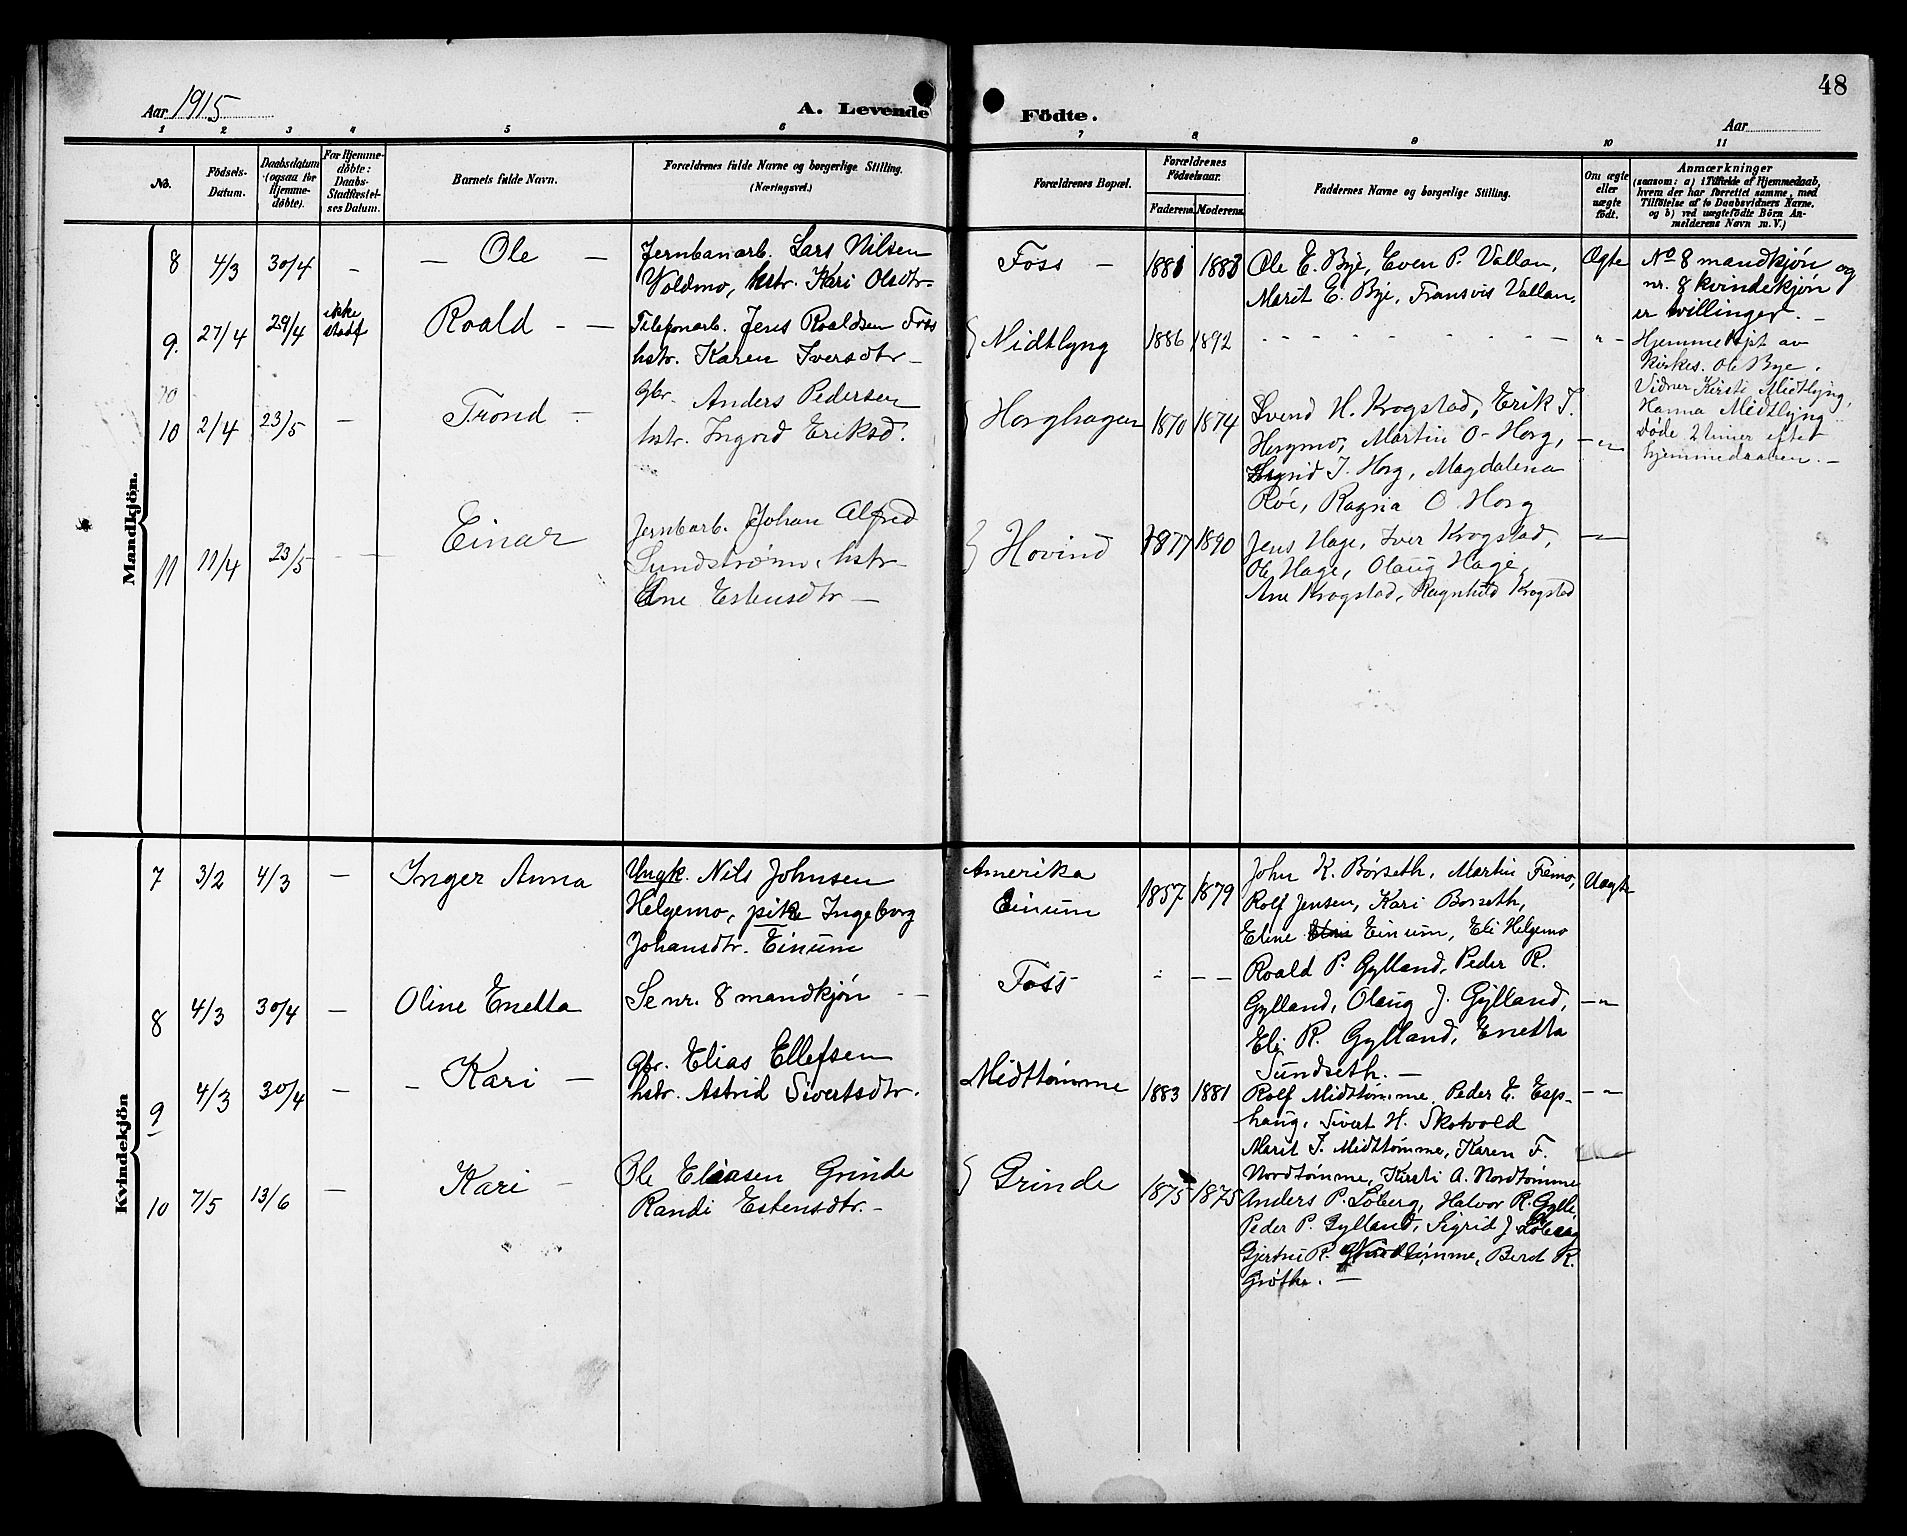 48
Aar 1915
A. Levende Födte.
Aar
1 2 3 4 5 6 7 8 9 10 11
No.
Födsels-Datum.
Daabsdatum (ogsaa for Hjemme-döbte).
For Hjemme-döbte: Daabs-Stadfæstel-ses Datum.
Barnets fulde Navn.
Forældrenes fulde Navne og borgerlige Stilling. (Næringsvei.)
Forældrenes Bopæl.
Forældrenes Födselsaar.
Faderens. Moderens.
Faddernes Navne og borgerlige Stilling.
Om ægte eller uægte födt.
Anmærkninger
(saasom: a) i Tilfælde af Hjemmedaab,
hvem der har forrettet samme, med
Tilföielse af to Daabsvidners Navne,
og b) ved uægtefödte Börn An-
melderens Navn m. V.)
Mandkjön.
8 4/3 30/4 - — Ole —
Jernbanarb. Lars Nilsen
Voldmo, hstr. Kari Olsdtr-
Foss — 1881 1883
Ole E. Bye, Even P. Vollan,
Marit E. Bye, Fransvis Vollan,
Ægte
No 8 mandkjön og
nr. 8 kvindekjön
er tvillinger. —
9. 27/4 29/4 ikke stadf Roald - —
Telefonarb. Jens Roaldsen Foss
hstr. Karen Iversdtr —
Midtlyng 1886 1892 - - - - - - - - — " -
Hjemmedöpt av
kirkes. Ole Bye.
Vidner Kirsti Midtlyng,
Hanna Midtlyng
Döde 2 timer efter
hjemmedaaben. —
10 2/4 23/5 — Trond -
Gbr. Anders Pedersen
hstr. Ingrid Eriksd.
Horghagen 1870 1874
Svend H. Krogstad, Erik I.
Horgmo, Martin O. Horg,
Sigrid J. Horg, Magdalena
Röe, Ragna O. Horg
-"-
11 11/4 23/5 — Einar
Jernbarb. Johan Alfred
Sundström, hstr-
Ane Estensdtr —
Hovind 1877 1890
Jens Hage, Iver Krogstad,
Ole Hage, Olaug Hage,
Ane Krogstad, Ragnhild Krogstad
-"-
Kvindekjön
7 3/2 4/3 — Inger Anna
Ungk. Nils Johnsen
Helgemo, pike Ingeborg
Johansdtr. Einum
Amerika
Einum
1857 1879
John K. Börseth, Martin Fremo,
Rolf Jensen, Kari Borseth,
Eline Einum, Eli Helgemo
Uægte
8 4/3 30/4 — Oline Enetta
Se nr. 8 mandkjön - —
Foss - — —
Roald P. Gylland, Peder R.
Gylland, Olaug J. Gylland,
Eli R. Gylland, Enetta
Sundseth. —
-"-
9 4/3 30/4 — - Kari —
Gbr. Elias Ellefsen
hstr. Astrid Sivertsdtr.
Midttömme 1883 1881
Rolf Midttömme, Peder E. Esp-
haug, Sivert H. Skotvold
Marit I. Midttömme, Karen F.
Nordtömme, Kirsti A. Nordtömme
-"-
10 7/5 13/6 — Kari —
Ole Eliasen Grinde
Randi Estensdtr. -
Grinde 1875 1875
Anders P. Löberg, Halvor R. Gylli,
Peder P. Gylland, Sigrid J. Löberg
Gjertru R. Nordtömme, Beret R.
Gröthe. —